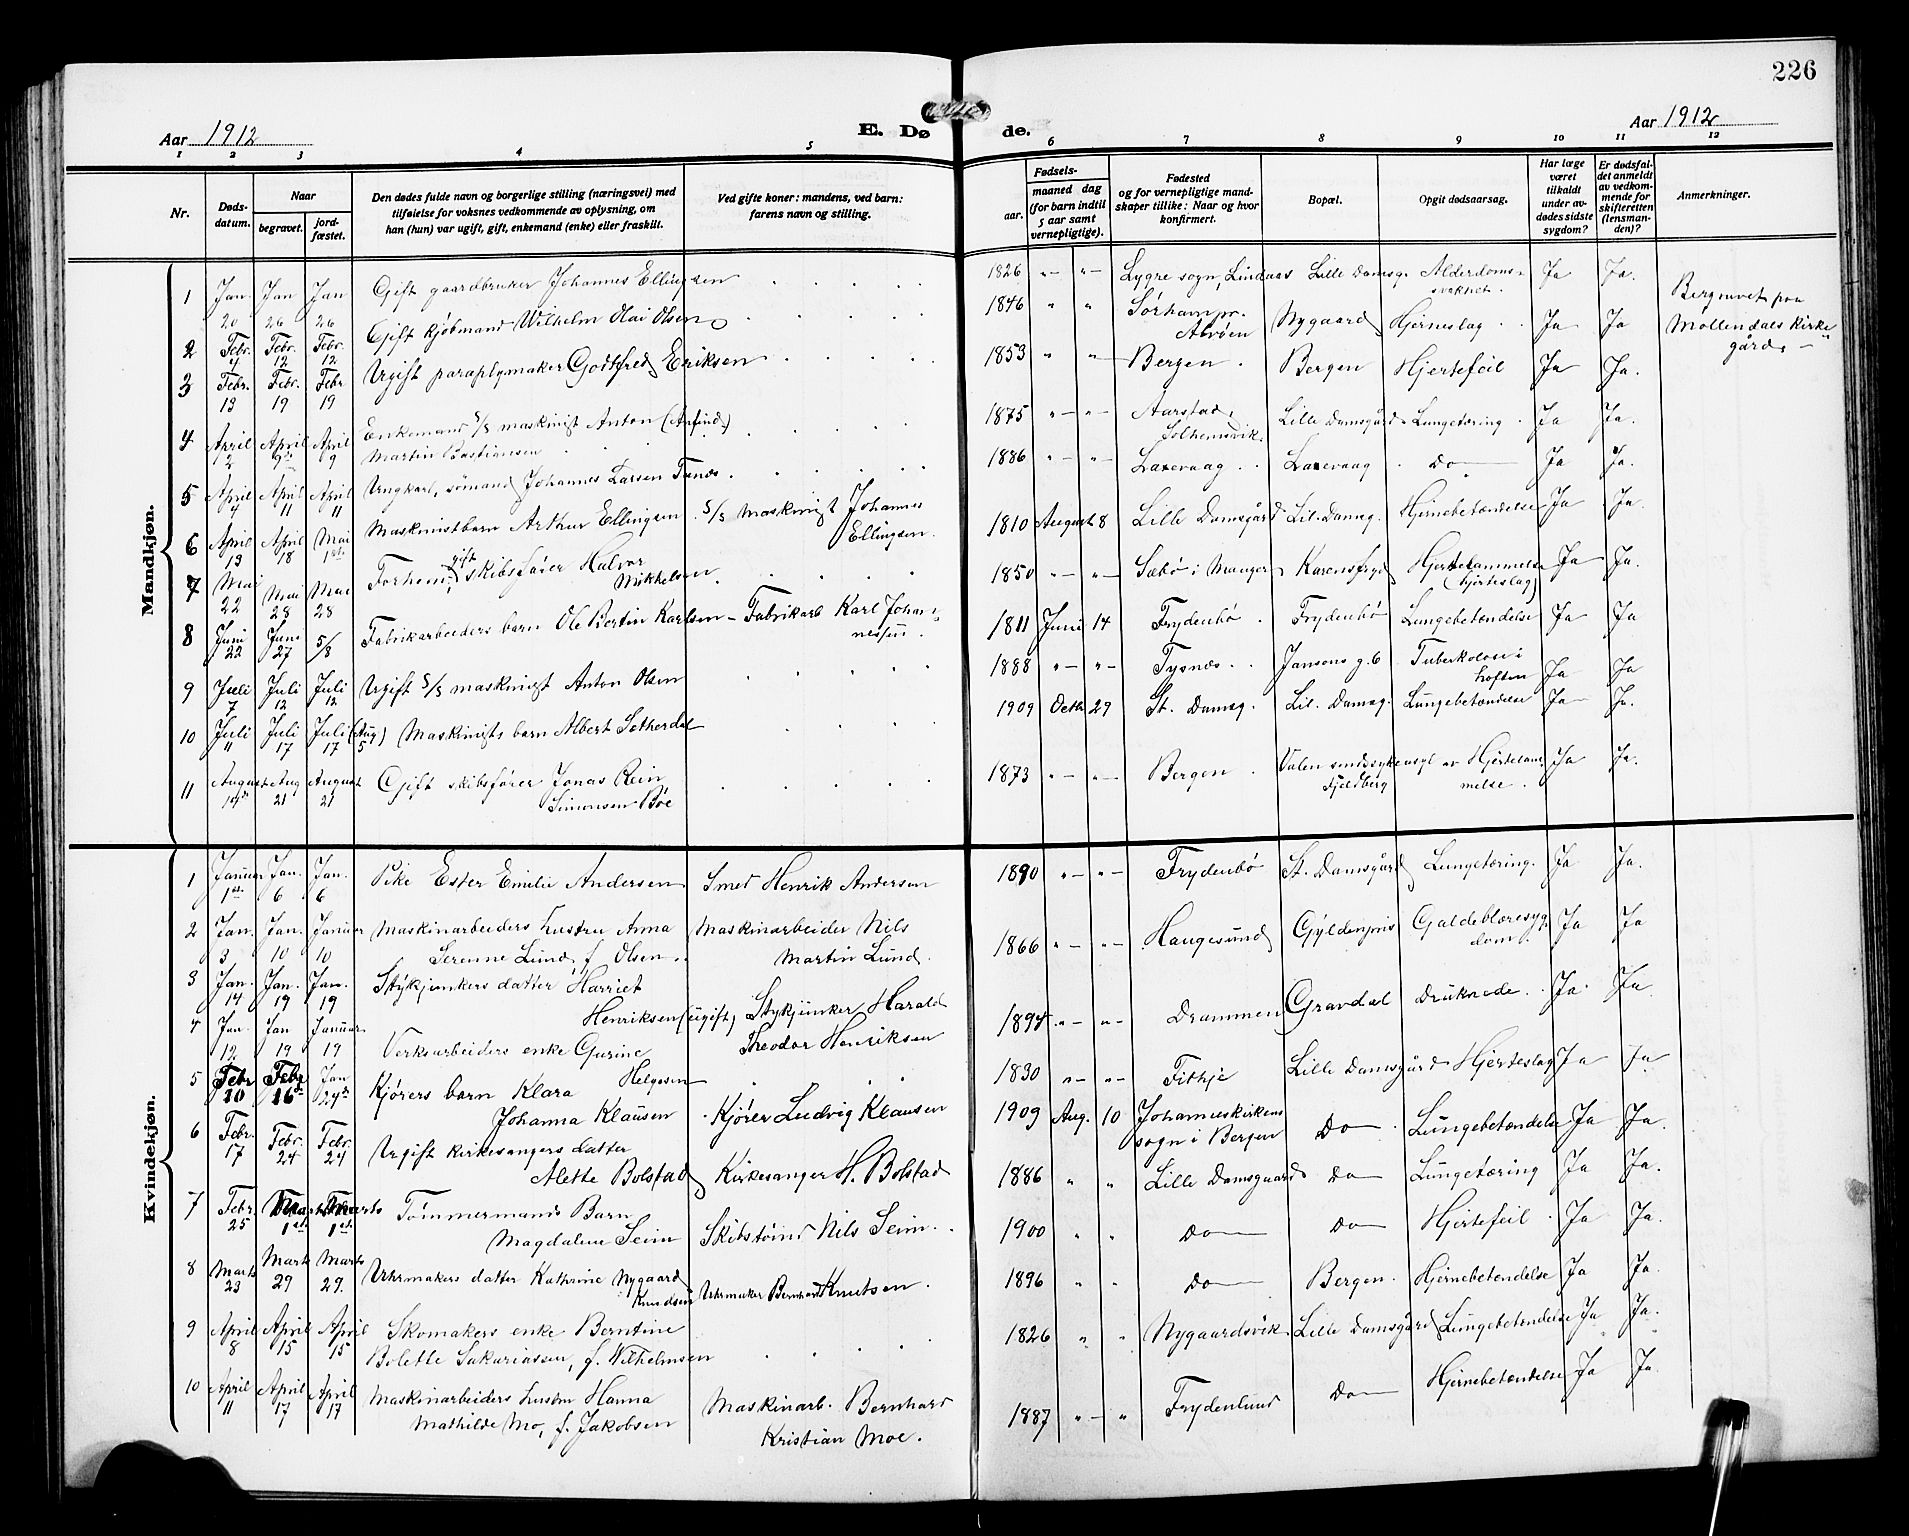 226
Aar 1912
E. Dø
de.
Aar 1912
1 2 3 4 5 6 7 8 9 10 11 12
Nr.
Døds-
datum.
Naar
begravet.
jord-
fæstet.
Den dødes fulde navn og borgerlige stilling (næringsvei) med
tilføielse for voksnes vedkommende av oplysning, om
han (hun) var ugift, gift, enkemand (enke) eller fraskilt.
Ved gifte koner: mandens, ved barn:
farens navn og stilling.
Fødsels-
aar.
maaned dag
(for barn indtil
5 aar samt
vernepligtige).
Fødested
og for vernepligtige mand-
skaper tillike: Naar og hvor
konfirmert.
Bopæl.
Opgit dødsaarsag.
Har læge
været
tilkaldt
under av-
dødes sidste
sygdom?
Er dødsfal-
det anmeldt
av vedkom-
mende for
skifteretten
(lensman-
den)?
Anmerkninger.
Mandkjøn.
1 Jan 20 Jan 26 Jan 26 Gift gaardbruker Johannes Ellingsen 1826 "— "— Lygre sogn, Lindaas Lille Damsg. Alderdoms-
svakhet. Ja Ja. Begravet paa
Møllendals kirke
gård. —
2 Febr. 4 Febr. 12 Febr. 12 Gift kjøbmand Wilhelm Olai Olsen 1846 " " Sørhampr.
Alvøen Nygaard Hjerneslag Ja Ja
3 Febr. 13 Febr. 19 Febr. 19 Ugift paraplymaker Godtfred Eriksen 1853 " "— Bergen. Bergen Hjertefeil Ja Ja.
4 April 2 April 9 April 9 Enkemand S/S maskinist Anton (Arfind)
Martin Bastiansen 1875 "— "— Aarstad,
Solheimsvik. Lille Damsgård Lungetæring Ja Ja.
5 April 4 April 11 April 11 Ungkarl, sømand Johannes Larsen 1886 "— "— Laxevaag Laxevaag do Ja Ja.
6 April 13 April 18 Mai 1st Maskinistbarn Arthur Ellingsen S/S Maskinist Johannes
Ellingsen. 1810 August 8 Lille Damsgård Lil. Damsg. Hjernebetændelse Ja Ja.
7 Mai 22 Mai 28 Mai 28 Forhenv. gift skibsfører Halvor
Mikkelsen 1850 "— "— Sæbø i Manger Karensfryd Hjertelammelse
(hjerteslag) Ja Ja.
8 Juni 22 Juni 27 5/8 Fabrikarbeiders barn Ole Bertin Karlsen – Fabrikarb Karl Johan-
nessen. 1811 Juni 14 Frydenbø Frydenbø Lungebetændelse Ja Ja
9 Juli 7 Juli 12 Juli 12 Ugift S/S maskinist Anton Olsen 1888 "— "— Tysnæs Jansons g. 6 Tuberkolose i
hoften Ja Ja
10 Juli 11 Juli 17 Juli 17 (Aug 5) Maskinists barn Albert Sætherdal 1909 Octb 29 St. Damsg. Lil. Damsg. Lungebetændelse Ja Ja.
11 August 14de Aug 21 August 21 Gift skibsfører Jonas Rein
Simonsen Bøe 1873 "— "— Bergen. Valen sindssykeasyl
Fjeldberg av Hjertelam
melse. Ja Ja.
Kvindekjøn.
1 Januar 1st Jan. 6 Jan. 6 Pike Ester Emilie Andersen Smed Henrik Andersen 1890 "— "— Frydenbø St. Damsgård Lungetæring. Ja Ja.
2 Jan. 3 Jan. 10 Januar 10 Maskinarbeiders hustru Anna
Serenne Lund, f. Olsen. Maskinarbeider Nils
Martin Lund. 1866 "— "— Haugesund Gyldenpris Galdeblæresyg
dom. Ja Ja
3 Jan. 14 Jan. 19 Jan. 19 Stykjunkers datter Harriet
Henriksen (ugift) Stykjunker Harald
Theodor Henriksen 1894 "— "— Drammen Gravdal Druknede. Ja. Ja
4 Jan. 12 Jan 19 Januar 19 Verksarbeiders enke Gurine
Helgesen 1830 "— "— Fithje Lille Damsgård Hjerteslag Ja Ja
5 Febr 10 Febr 16 Jan 24de Kjørers barn Klara
Johanna Klausen Kjører Ludvig Klausen 1909 Aug. 10 Johanneskirkens
sogn i Bergen Do Lungebetændelse Ja Ja.
6 Febr. 17 Febr. 24 Febr. 24 Ugift kirkesangers datter
Alette Bolstad Kirkesanger H. Bolstad 1886 " " Lille Damsgaard do Lungetæring Ja Ja.
7 Febr. 25 Marts 1st Marts 1st Tømmermands Barn
Magdalene Seim Skibstømr Nils Seim. 1900 " " do do Hjertefeil Ja Ja.
8 Marts 23 Marts 29 Marts 29. Uhrmakers datter Kathrine Nygaard
Knudsen Uhrmaker Bernhard Knutsen. 1896 " " do Bergen. Hjernebetændelse Ja Ja.
9 April 8 April 15 April 15 Skomakers enke Berntine
Bolette Sakariassen, f. Wilhelmsen 1826 " " Nygaardsvik Lille Damsgård Lungebetændelse Ja Ja.
10 April 11 April 17 April 17 Maskinarbeiders hustru Hanna
Mathilde Mo, f. Jakobsen Maskinarb. Bernhard
Kristian Moe. 1887 "— " Frydenlund Do Hjernebetændelse Ja Ja.